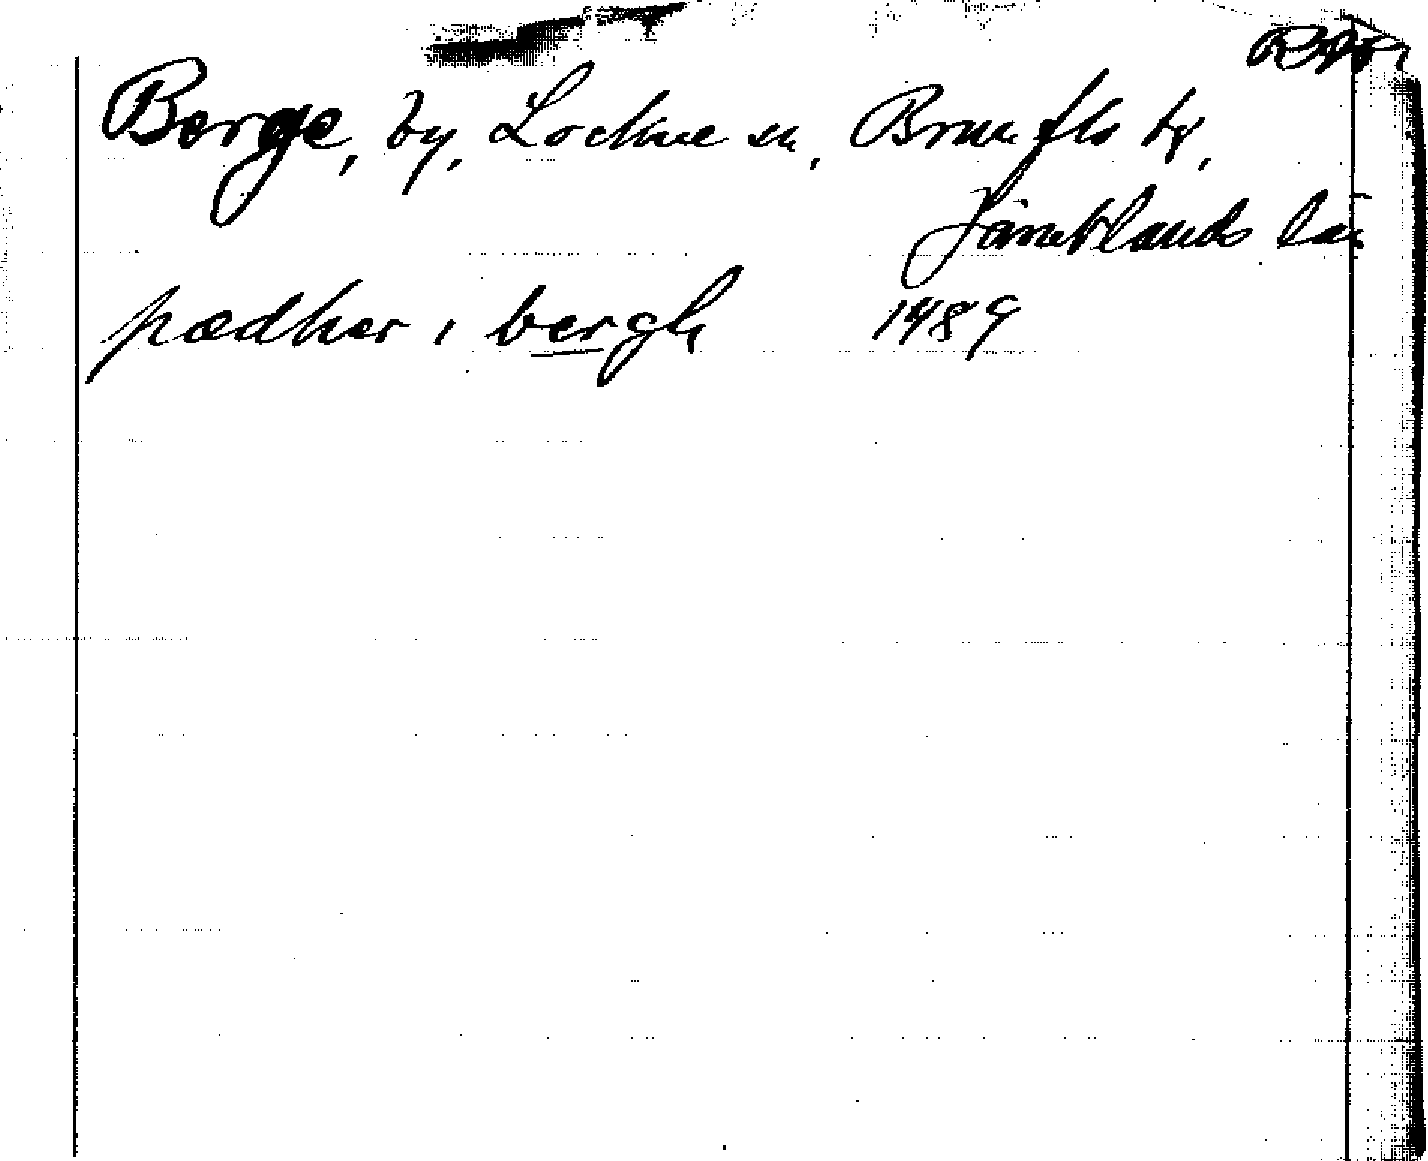 Berge, by, Lockne sn, Brunflo tg,
Jämtlands län
pædher i bergh 1489